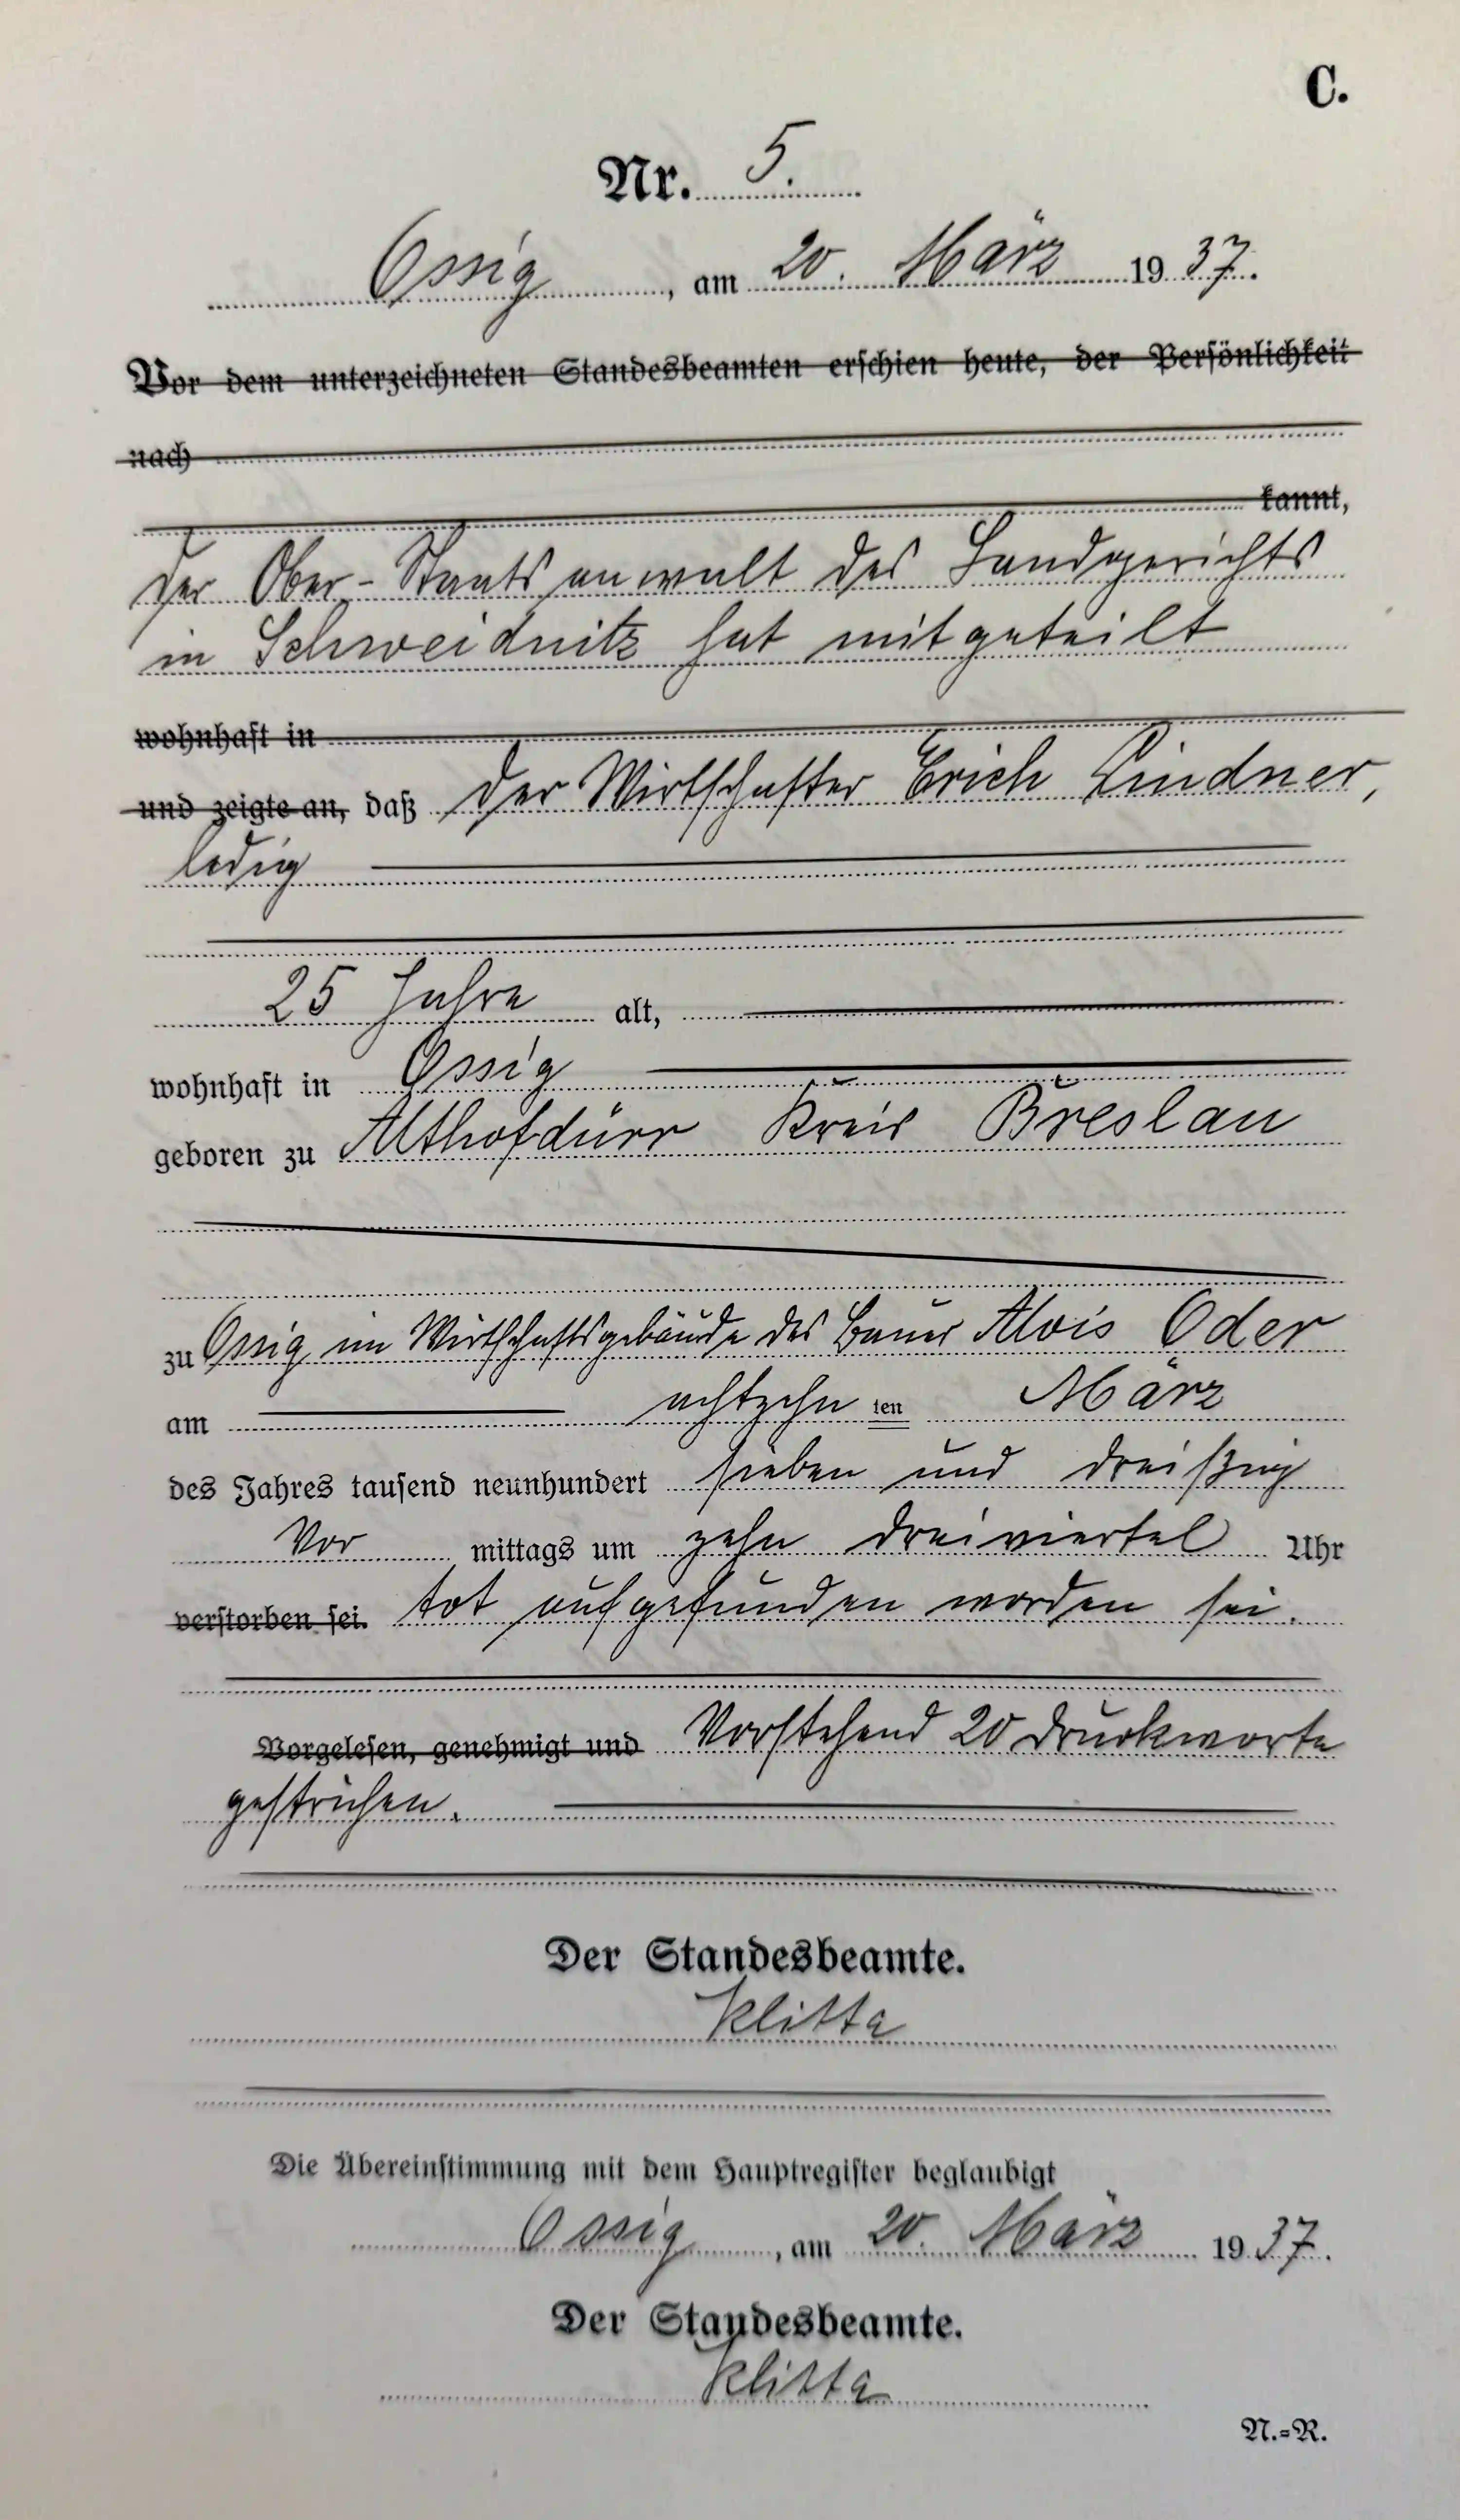 C.
Nr. 5.
Ossig, am 20. März 1937.
Vor dem unterzeichneten Standesbeamten erschien heute, der Persönlichkeit
nach
kannt,
der Ober-Staatsanwalt des Landgerichts
in Schweidnitz hat mitgeteilt
wohnhaft in
und zeigte an, daß der Wirtschafter Erich Lindner,
ledig
25 Jahre alt,
wohnhaft in Ossig
geboren zu Althofdürr Kreis Breslau
zu Ossig im Wirtschaftsgebäude des Bauer Alois Oder
am achtzehn ten März
des Jahres tausend neunhundert sieben und dreißig
Vor mittags um zehn dreiviertel Uhr
verstorben sei. tot aufgefunden worden sei.
Vorgelesen, genehmigt und Vorstehend 20 Druckworte
gestrichen.
Der Standesbeamte.
Klitta
Die Übereinstimmung mit dem Hauptregister beglaubigt
Ossig, am 20. März 1937.
Der Standesbeamte.
Klitta
N.=R.